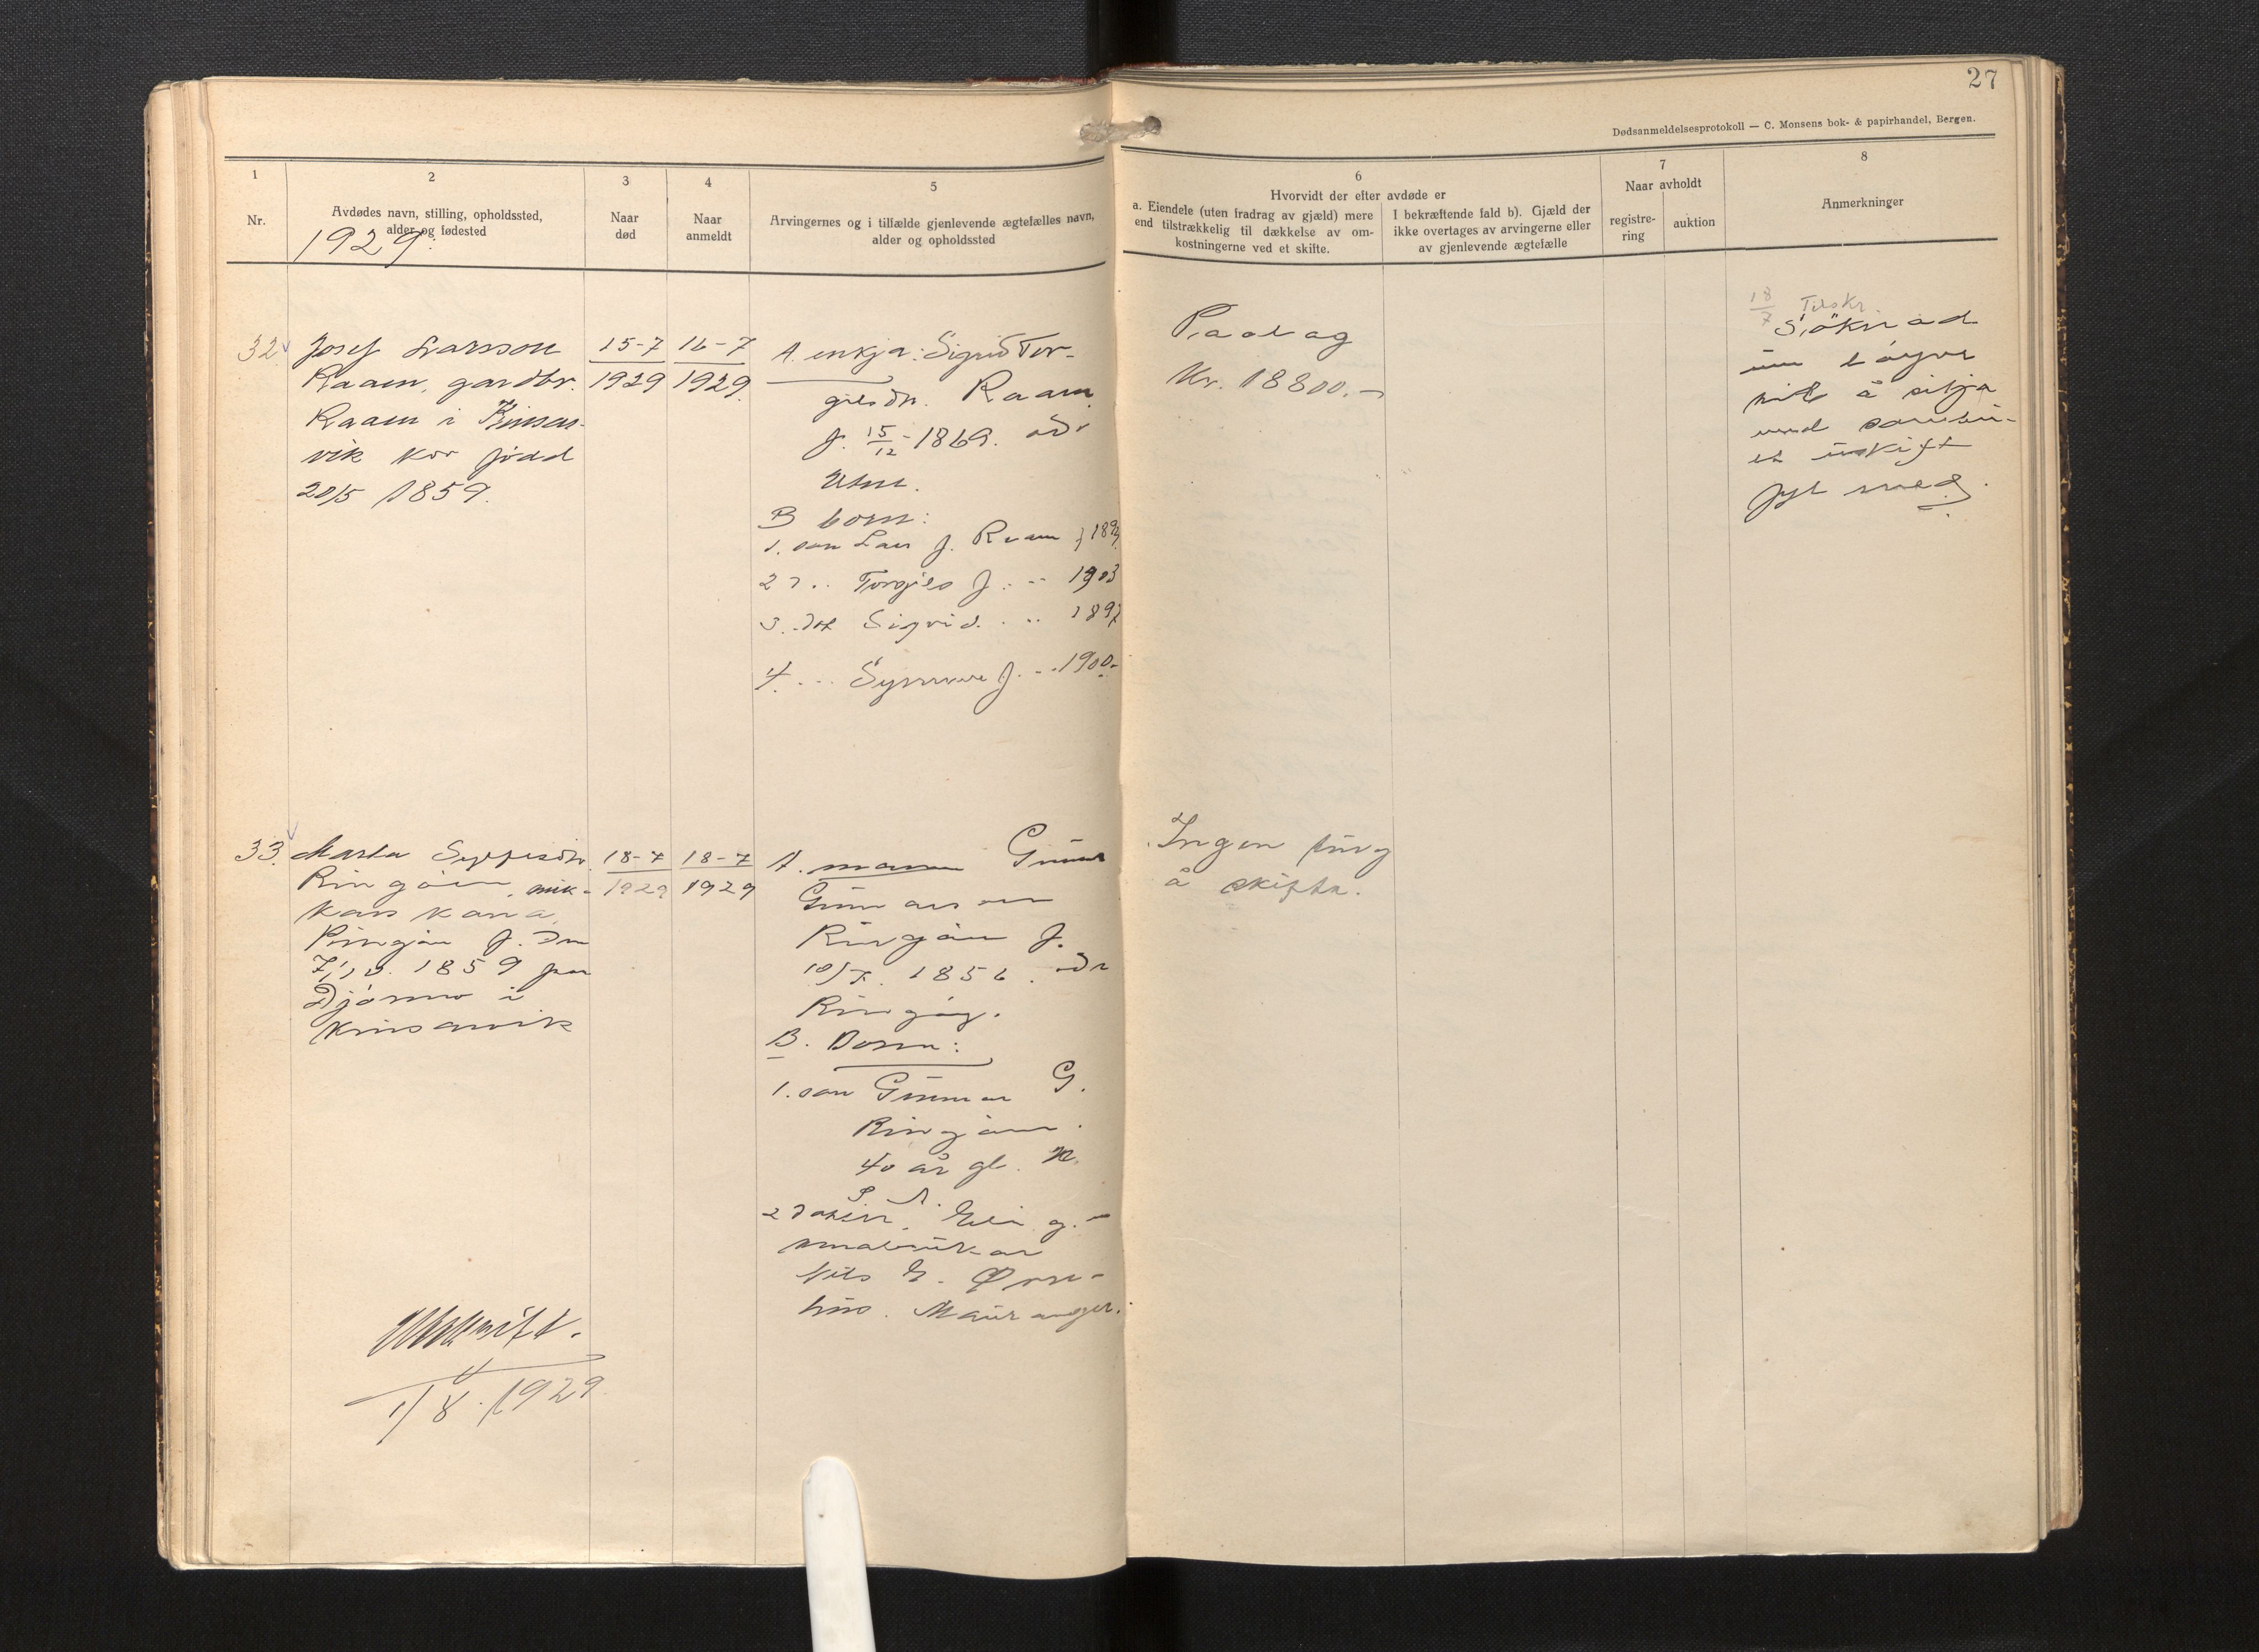 27
Dødsanmeldelsesprotokoll — C. Monsens bok- & papirhandel, Bergen.
1
Nr.
2
Avdødes navn, stilling, opholdssted,
alder og fødested
1929.
3
Naar
død
4
Naar
anmeldt
5
Arvingernes og i tilfælde gjenlevende ægtefælles navn,
alder og opholdssted
6
Hvorvidt der efter avdøde er
a. Eiendele (uten fradrag av gjæld) mere
end tilstrækkelig til dækkelse av om-
kostningerne ved et skifte.
I bekræftende fald b). Gjæld der
ikke overtages av arvingerne eller
av gjenlevende ægtefælle
7
Naar avholdt
registre-
ring
auktion
8
Anmerkninger
32
Josef Larsson
Raaen, gardbr.
Raaen i Kinsar-
vik kor født
20/5 1859.
15-7
1929
16-7
1929.
A. enkja: Sigrid Tor-
gilsdtr. Raaen
f. 15/12-1869. adr
Utne.
B born:
1. son Lars J. Raaen f 189
2 Torgils J. 1903
3. dot Sigrid 1897
4 Synneve J. 1900.
Paalag
Kr. 18800.-
18/7 Tilskr.
Söknad
um löyve
til å sitja
med sambu-
et uskift
fyl med.
33.
Marta Sjursdtr.
Ringöen,
kona
Ringöen f. den
1859 paa
Djönno i
Kinsarvik
18-7
1929
18-7
1929
A. mannen Gunnar
Gunnarson
Ringöen f.
10/7. 1856. adr
Ringöy.
B. Born:
1. son Gunnar G.
Ringöen.
40 år gl.
2 g.
småbrukar
Nils
Mauranger.
Ingen ting
å skifta.
Utskrift.
1/8.1929